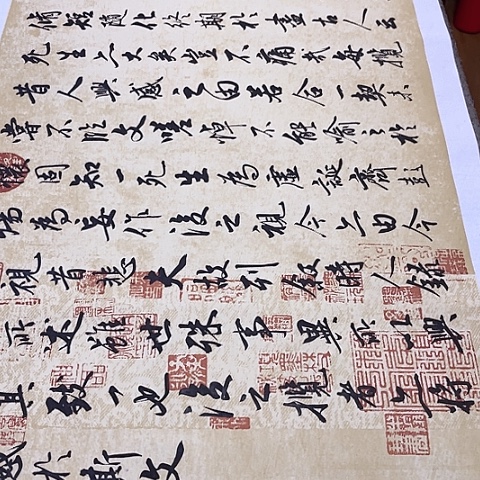 脩短隨化終期於盡古人云
死生亦大矣豈不痛哉每攬
昔人興感之由若合一契未
嘗不臨文嗟悼不能喻之於
固知一死生為虛誕齊彭
殤為妄作後之視今亦由今
視昔悲夫故列叙時人錄
所述雖世殊事異所以興
其致一也後之攬者亦將
感於斯文